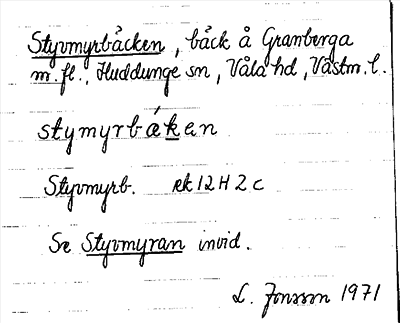 Styvmyrbäcken, bäck å Granberga
m. fl., Huddunge sn, Våla hd, Västm. l.
stymyrbǽken
Styvmyrb. ek 12 H 2 c
Se Styvmyran invid.
L. Jonsson 1971